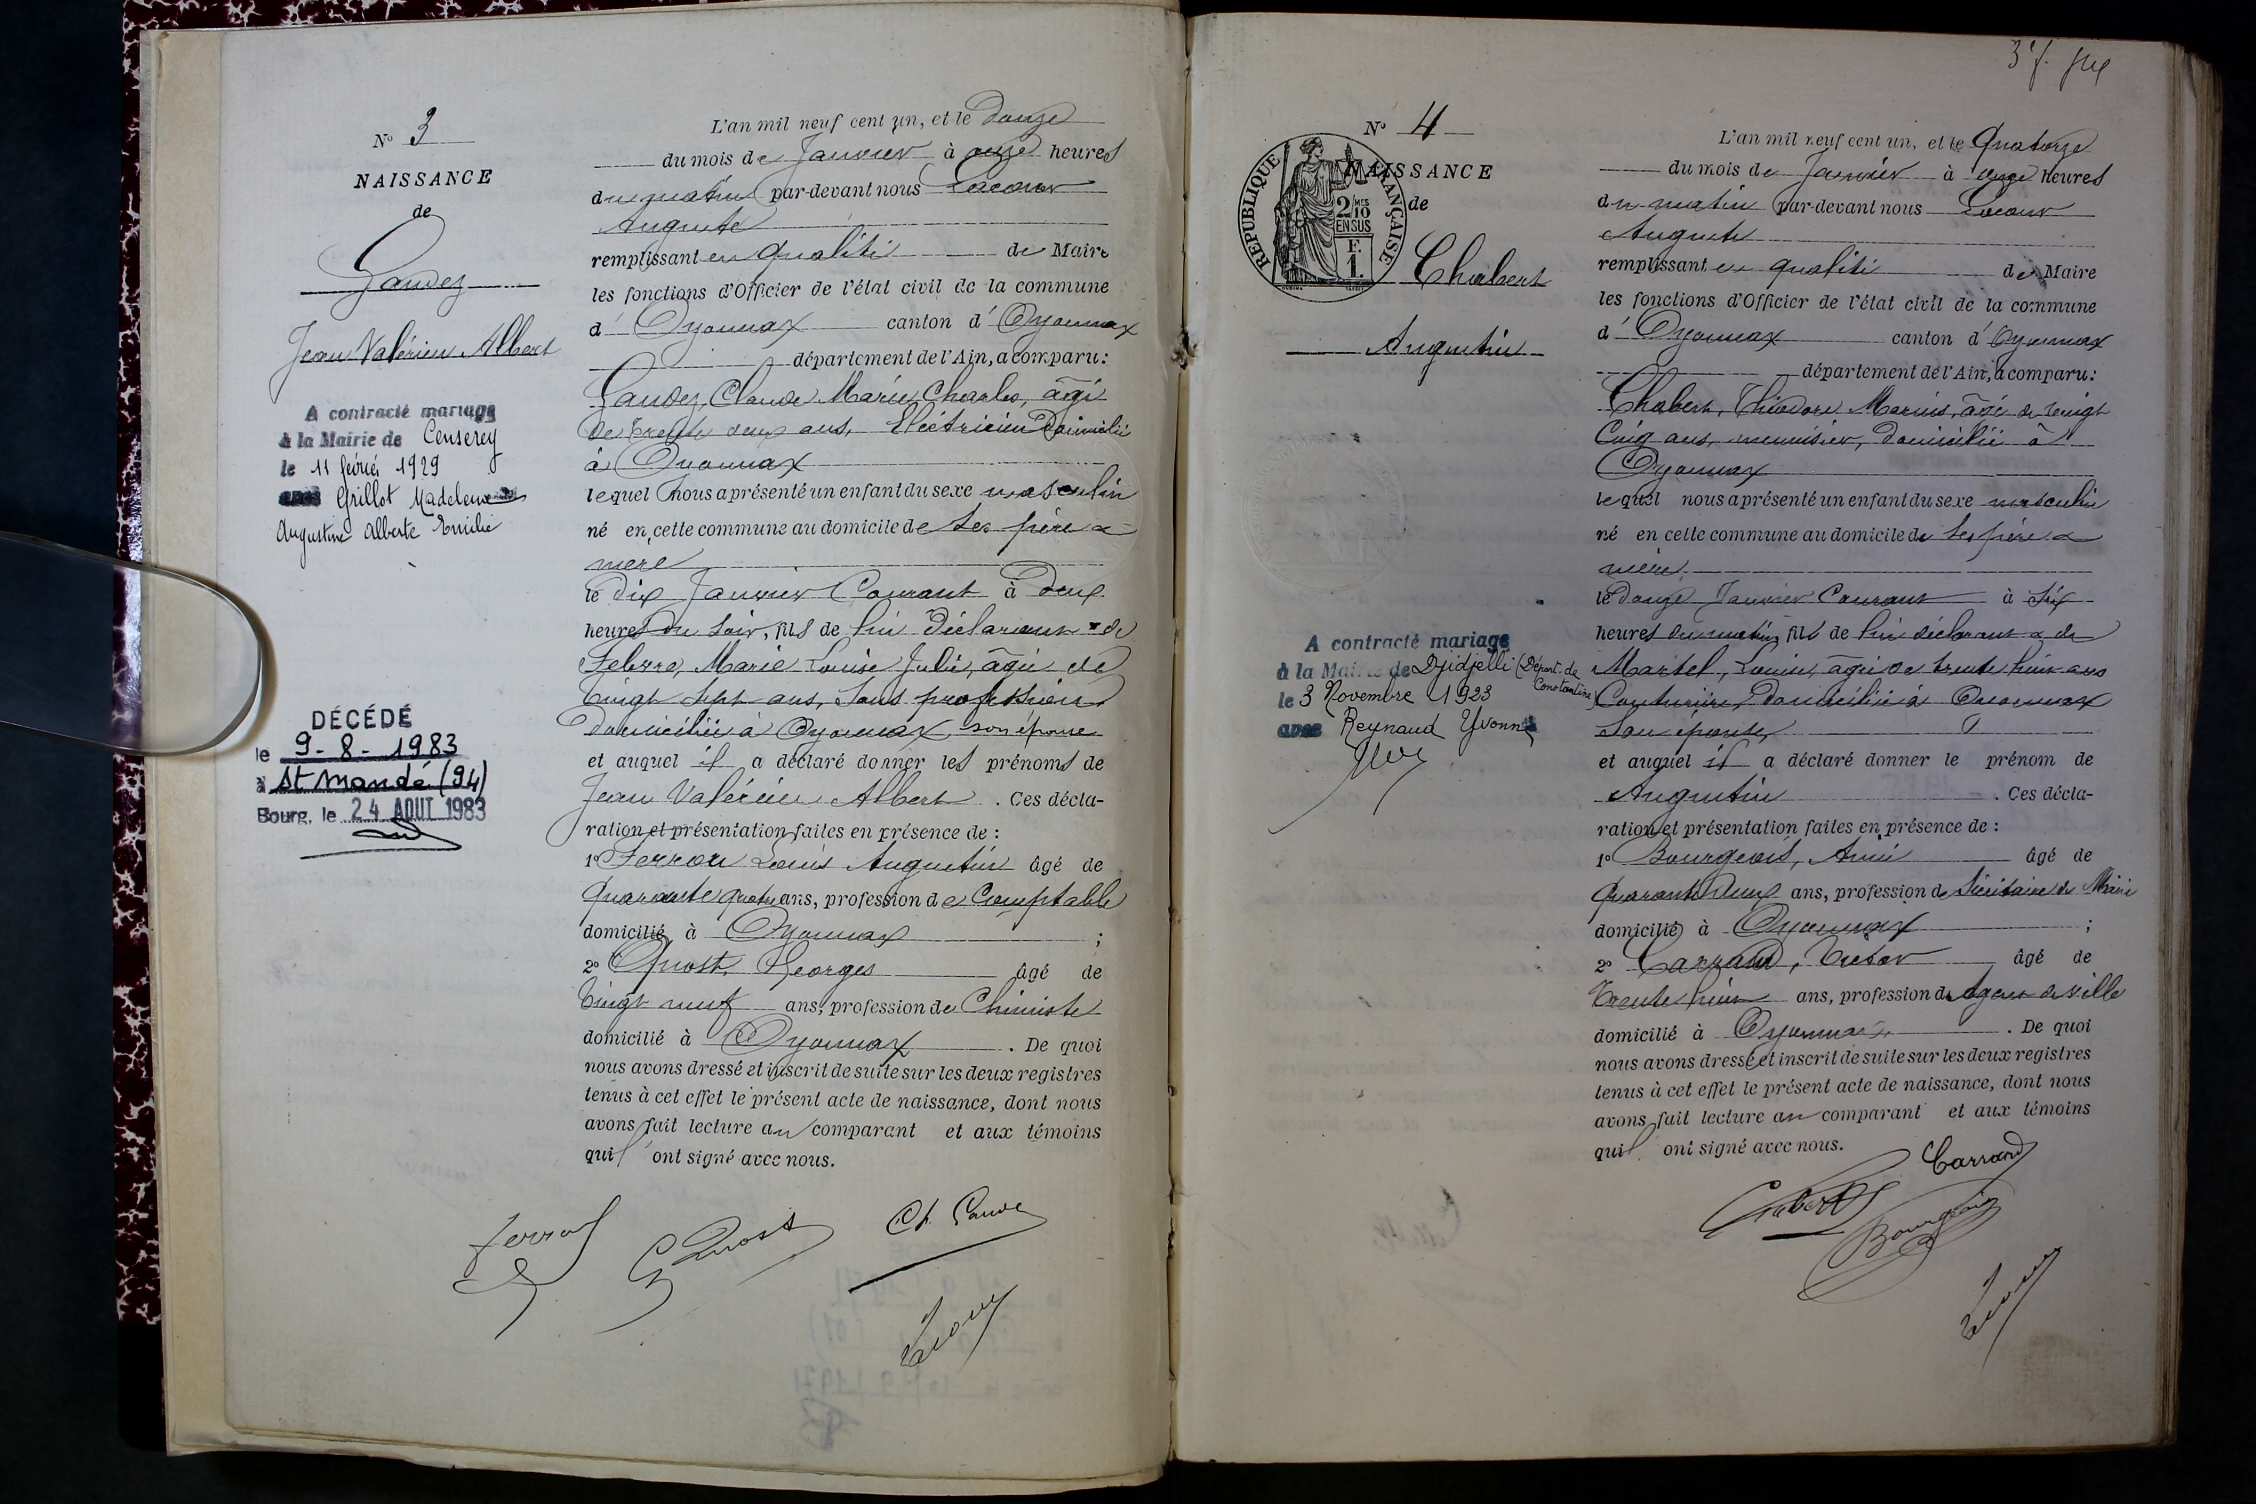 N° 3
NAISSANCE
de
Gaudez
Jean Valérien Albert
A contracté mariage
à la Mairie de Censerey
le 11 février 1929
avec Grillot Madeleine
Augustine Alberte Emilie
DÉCÉDÉ
le 9-8-1983
à St Mandé (94)
Bourg, le 24 AOUT 1983
L'an mil neuf cent un, et le Douze
du mois de Janvier à onze heures
du matin par-devant nous Lacour
Auguste
remplissant en qualité de Maire
les fonctions d'Officier de l'état civil de la commune
d' Oyonnax canton d' Oyonnax
département de l'Ain, a comparu:
Gaudez, Claude Marie Charles, âgé
de trente deux ans, Electricien Domicilié
à Oyonnax
lequel nous a présenté un enfant du sexe masculin
né en cette commune au domicile de ses père &
mère
le dix Janvier Courant à deux
heures du soir, fils de lui déclarant & de
Marie Louise Julie, âgée de
vingt sept ans, sans profession,
domiciliée à Oyonnax, son épouse
et auquel il a déclaré donner les prénoms de
Jean Valérien Albert. Ces décla-
ration et présentation faites en présence de :
1° Louis Augustin âgé de
quarante quatre ans, profession de Comptable
domicilié à Oyonnax ;
2° Quost, Georges âgé de
Vingt neuf ans, profession de Chimiste
domicilié à Oyonnax. De quoi
nous avons dressé et inscrit de suite sur les deux registres
tenus à cet effet le présent acte de naissance, dont nous
avons fait lecture au comparant et aux témoins
qui ont signé avec nous.
G Quost
Lacour
3 f.
N° 4
NAISSANCE
de
RÉPUBLIQUE FRANÇAISE
2/10 MES
EN SUS
F.
1.
Chabert
Augustin
A contracté mariage
à la Mairie de Djidjelli (Départ. de
Constantine)
le 3 Novembre 1923
avec Reynaud Yvonne
L'an mil neuf cent un, et le Quatorze
du mois de Janvier à onze heures
du matin par-devant nous Lacour
Auguste
remplissant en qualité de Maire
les fonctions d'Officier de l'état civil de la commune
d' Oyonnax canton d' Oyonnax
département de l'Ain, a comparu:
Chabert, Théodore Marius, âgé de vingt
Cinq ans, menuisier, domicilié à
Oyonnax
lequel nous a présenté un enfant du sexe masculin
né en cette commune au domicile de ses père &
mère
le douze Janvier Courant à six
heures du matin fils de lui déclarant & de
Martel, Louise, âgée de trente huit ans
Couturière, domiciliée à Oyonnax
Son épouse,
et auquel il a déclaré donner le prénom de
Augustin. Ces décla-
ration et présentation faites en présence de :
1° Bourgeois, Aimé âgé de
Quarante deux ans, profession de Secrétaire de Mairie
domicilié à Oyonnax ;
2° Carrand, Victor âgé de
Trente huit ans, profession de Agent de ville
domicilié à Oyonnax. De quoi
nous avons dressé et inscrit de suite sur les deux registres
tenus à cet effet le présent acte de naissance, dont nous
avons fait lecture au comparant et aux témoins
qui ont signé avec nous.
Carrand
Chabert
Bourgeois
Lacour